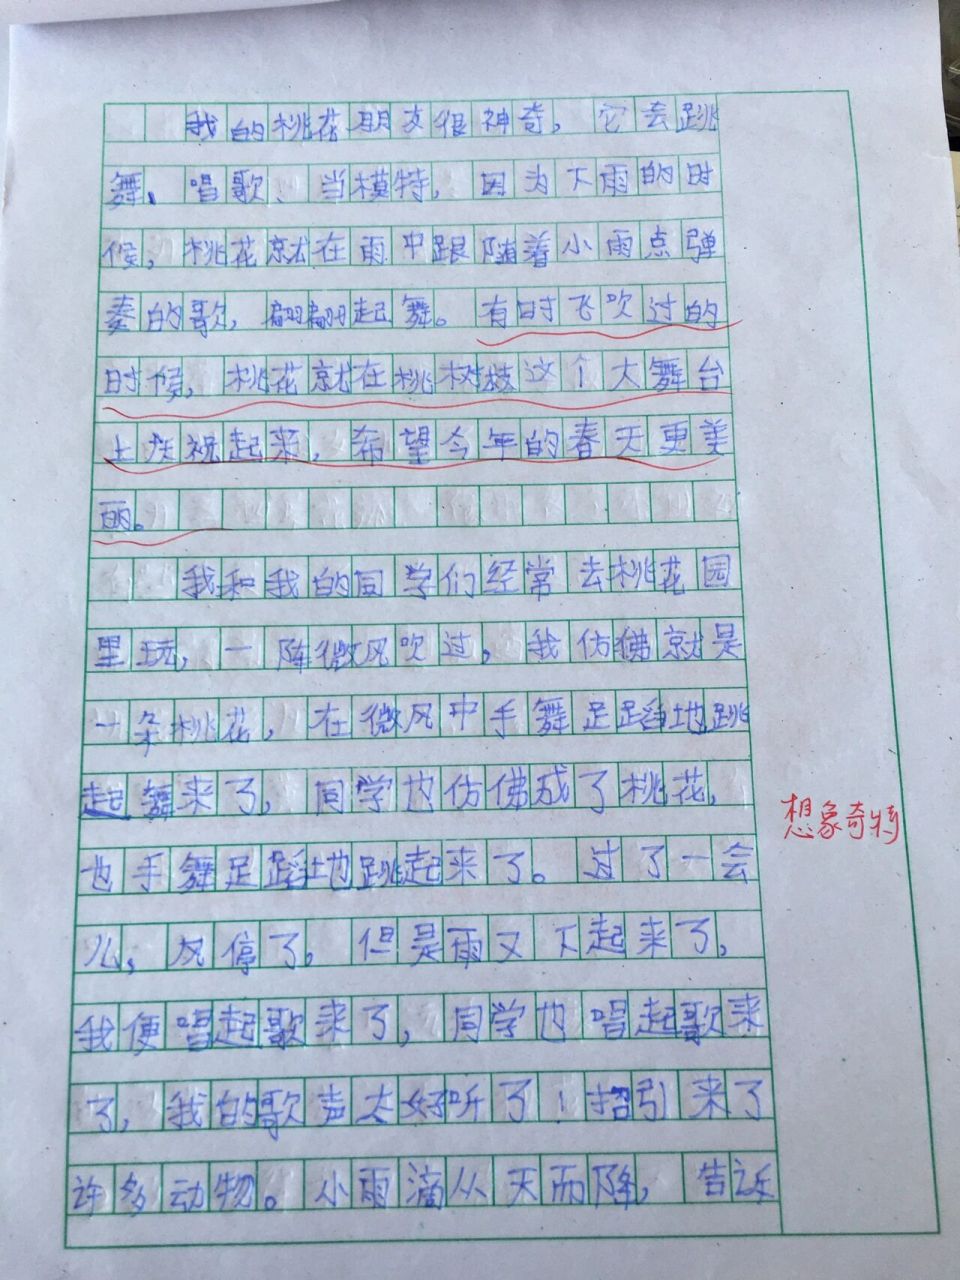 我的桃花朋友很神奇，它会跳
舞、唱歌、当模特，因为下雨的时
候，桃花就在雨中跟随着小雨点弹
奏的歌，翩翩起舞。有时飞吹过的
时候，桃花就在桃树枝这个大舞台
上庆祝起来，希望今年的春天更美
丽。
我和我的同学们经常去桃花园
里玩，一阵微风吹过，我仿佛就是
一朵桃花，在微风中手舞足蹈地跳
起舞来了，同学也仿佛成了桃花，
也手舞足蹈地跳起来了。过了一会
儿，风停了，但是雨又下起来了，
我便唱起歌来了，同学也唱起歌来
了，我的歌声太好听了！招引来了
许多动物。小雨滴从天而降，告诉
想象奇特